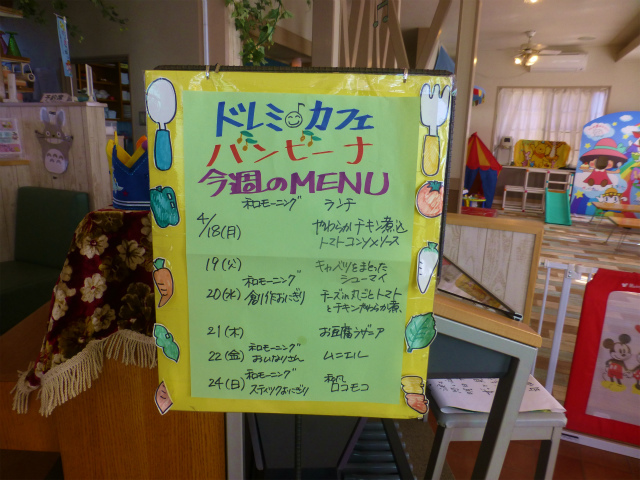 ドレミカフェ
バンビーナ
今週のMENU
和モーニング ランチ
4/18(月) やわらかチキン煮込
トマトコンソメソース
19(火) キャベツをまとった
シューマイ
和モーニング
20(水) 創作おにぎり チーズin丸ごとトマト
とチキンやわらか煮
21(木) お豆腐ラザニア
和モーニング
22(金) おいなりさん ムニエル
和モーニング
24(日) スティックおにぎり 和風ロコモコ